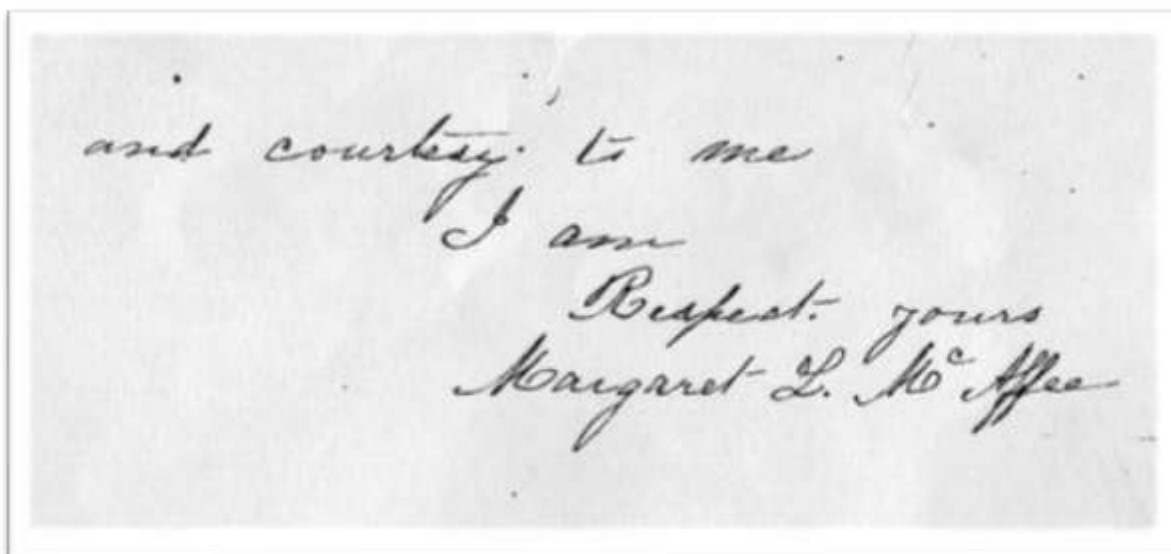 and courtesy to me
I am
Respect. yours
Margaret L. Mc Affee